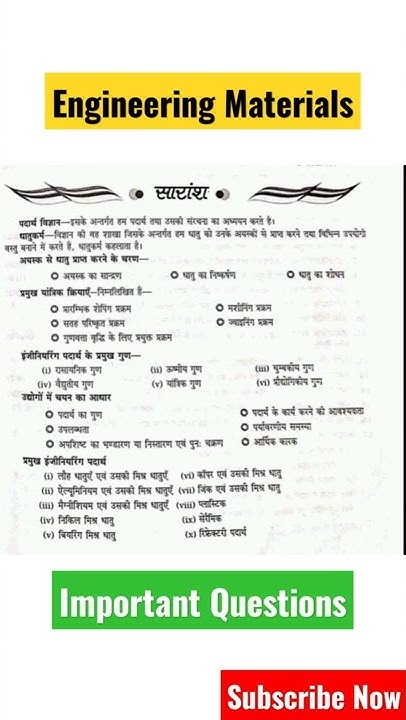 Engineering Materials
सारांश
पदार्थ विज्ञान—इसके अन्तर्गत हम पदार्थ तथा उसकी संरचना का अध्ययन करते है।
धातुकर्म—विज्ञान की वह शाखा जिसके अन्तर्गत हम धातु को उनके अयस्कों से प्राप्त करने तथा विभिन्न उपयोगी
वस्तु बनाने में करते हैं, धातुकर्म कहलाता है।
अयस्क से धातु प्राप्त करने के चरण—
अयस्क का सान्द्रण धातु का निष्कर्षण धातु का शोधन
प्रमुख यांत्रिक क्रियाएँ—निम्नलिखित है—
प्रारम्भिक शेपिंग प्रक्रम मशीनिंग प्रक्रम
सतह परिष्कृत प्रक्रम ज्वाइनिंग प्रक्रम
गुणवत्ता वृद्धि के लिए प्रयुक्त प्रक्रम
इंजीनियरिंग पदार्थ के प्रमुख गुण—
(i) रासायनिक गुण (ii) ऊष्मीय गुण (iii) चुम्बकीय गुण
(iv) वैद्युतीय गुण (v) यांत्रिक गुण (vi) प्रौद्योगिकीय गुण
उद्योगों में चयन का आधार
पदार्थ का गुण पदार्थ के कार्य करने की आवश्यकता
उपलब्धता पर्यावरणीय समस्या
अपशिष्ट का भण्डारण या निस्तारण एवं पुनः चक्रण आर्थिक कारक
प्रमुख इंजीनियरिंग पदार्थ
(i) लौह धातुएँ एवं उसकी मिश्र धातुएँ (vi) कॉपर एवं उसकी मिश्र धातु
(ii) ऐल्युमिनियम एवं उसकी मिश्र धातुएँ (vii) जिंक एवं उसकी मिश्र धातु
(iii) मैग्नीशियम एवं उसकी मिश्र धातुएँ (viii) प्लास्टिक
(iv) निकिल मिश्र धातु (ix) सेरैमिक
(v) बियरिंग मिश्र धातु (x) रिफ्रेक्टरी पदार्थ
Important Questions
Subscribe Now